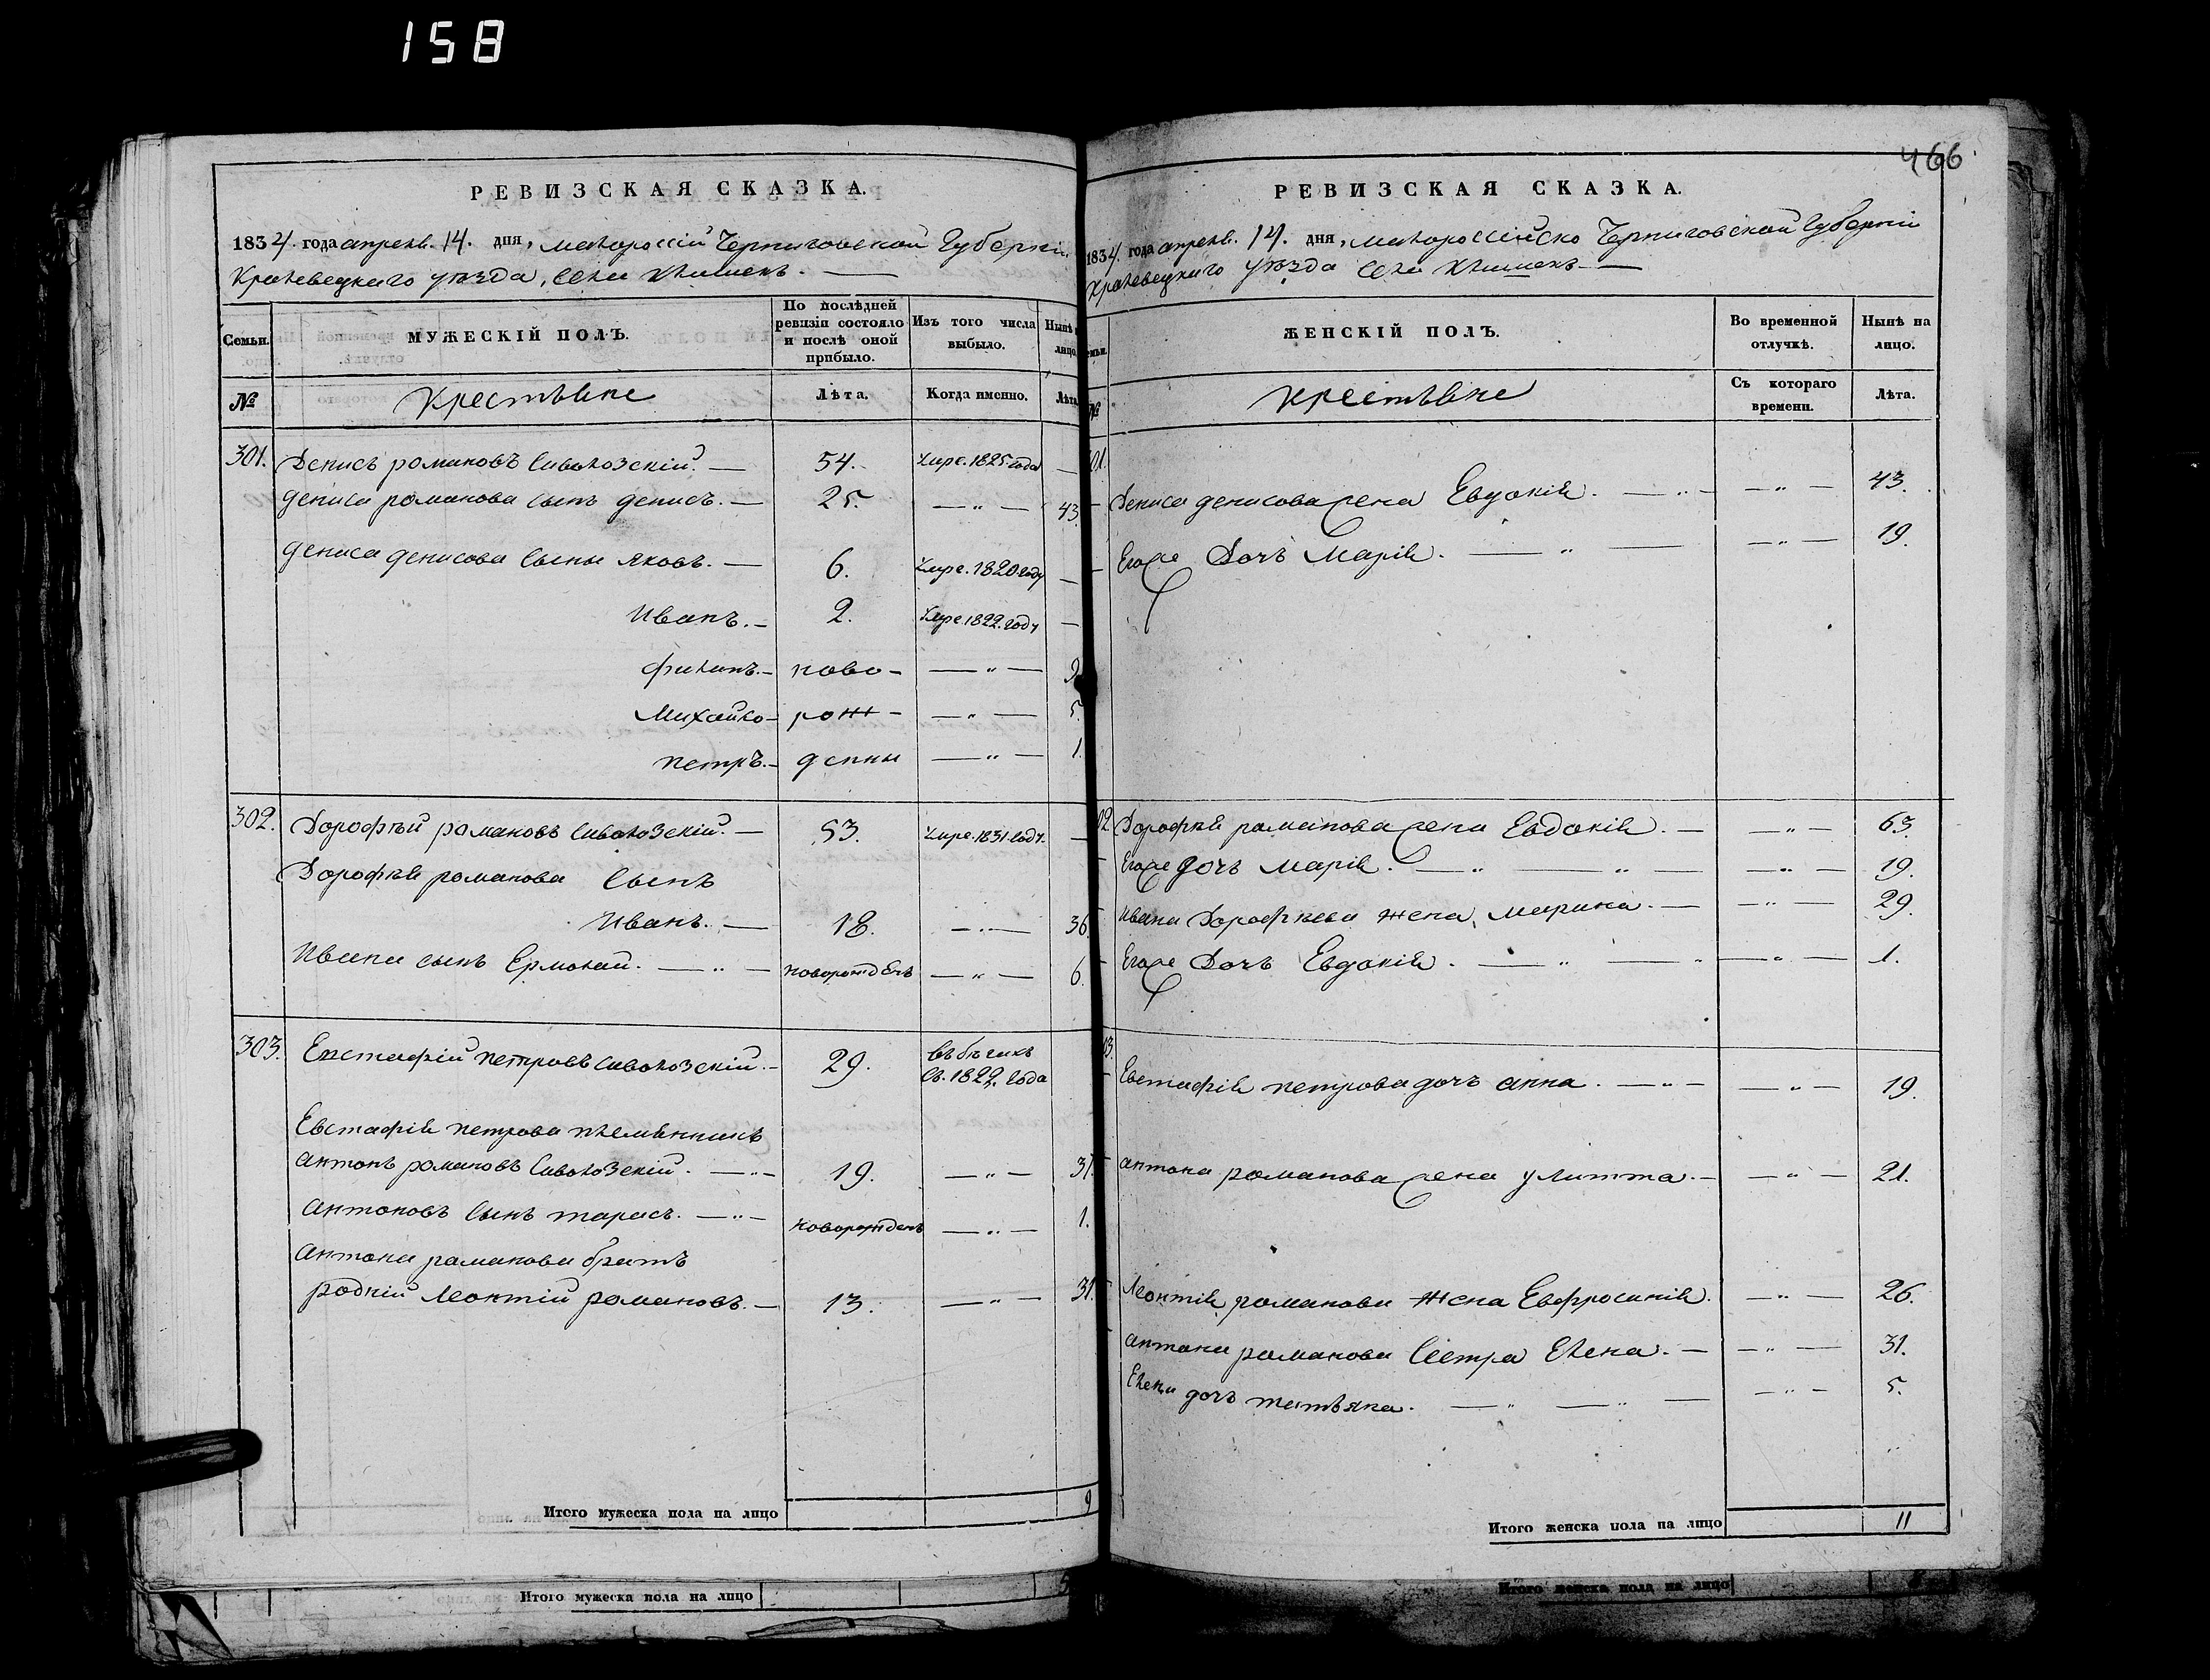 158
466
РЕВИЗСКАЯ СКАЗКА.
1834. года апреля. 14. дня, малороссій Черниговской Губерніи
Кролевецкаго уѣзда, села Клишекъ. —
Семьи.
МУЖЕСКІЙ ПОЛЪ.
По послѣдней ревизіи состояло и послѣ оной прибыло.
Изъ того числа выбыло.
Нынѣ на лицо.
№
Крестьяне
Лѣта.
Когда именно.
Лѣта.
301. Денисъ романовъ Сиволозскій. — 54. Умре. 1825 года —
дениса романова сынъ денисъ. — 25. — „ — 43.
дениса денисова сыны яковъ. — 6. Умре. 1820 году —
Иванъ. — 2. Умре 1822. году —
филипъ. — ново- — „ — 9
Михайло — рож- — „ — 5.
петръ. — денны — „ — 1.
302. Дорофѣй романовъ Сиволозскій. — 53. Умре. 1831 году. —
Дорофѣя романова Сынъ
Иванъ. — 18. — „ — 36.
Ивана сынъ Ермолай. — „ — новорожденъ — „ — 6.
303. Евстафій петровъ сиволозскій. — 29. въ бѣгахъ
съ. 1822. года
Евстафія петрова племянникъ
антонъ романовъ Сиволозскій. — „ — 19. — „ — 31.
Антоновъ Сынъ тарасъ. — „ — новорожденъ — „ — 1.
Антона романова братъ
родній Леонтій романовъ. — 13. — „ — 31.
Итого мужеска пола на лицо 9
Итого мужеска пола на лицо 5
РЕВИЗСКАЯ СКАЗКА.
1834. года апреля. 14. дня, малороссійско Черниговской Губерніи
Кролевецкаго уѣзда села Клишекъ —
ЖЕНСКІЙ ПОЛЪ.
Во временной отлучкѣ.
Нынѣ на лицо.
№
крестьяне
Съ котораго времени.
Лѣта.
01. Дениса денисова жена Евдокія. — „ — — „ — 43.
Егоже Дочъ Марія. — „ — — „ — 19.
02. Дорофѣя романова жена Евдокія. — — „ — 63.
Егоже дочъ Марія. — „ — „ — — „ — 19.
Ивана Дорофѣева жена, марина. — — „ — 29.
Егоже Дочъ Евдокія. — „ — „ — „ — 1.
03. Евстафія петрова дочъ анна. — „ — — „ — 19.
антона романова жена улитта. — — „ — 21.
Леонтія романова жена Евфросинія. — „ — 26.
антона романова Сестра Елена. — — „ — 31.
Елены дочъ татьяна. — „ — „ — — „ — 5.
Итого женска пола на лицо 11
Итого женска пола на лицо